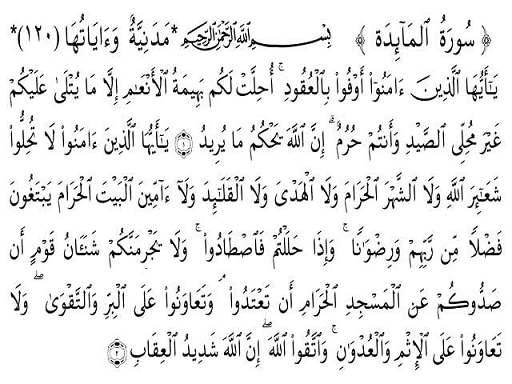 ﴿ سُورَةُ الْمَآئِدَة ﴾ بِسْمِ اللَّهِ الرَّحْمَٰنِ الرَّحِيمِ *مَدَنِيَّةٌ وَءَايَاتُهَا (١٢٠)*
يَـٰٓأَيُّهَا ٱلَّذِينَ ءَامَنُوٓا۟ أَوْفُوا۟ بِٱلْعُقُودِ ۚ أُحِلَّتْ لَكُم بَهِيمَةُ ٱلْأَنْعَـٰمِ إِلَّا مَا يُتْلَىٰ عَلَيْكُمْ
غَيْرَ مُحِلِّى ٱلصَّيْدِ وَأَنتُمْ حُرُمٌ ۗ إِنَّ ٱللَّهَ يَحْكُمُ مَا يُرِيدُ ﴿١﴾ يَـٰٓأَيُّهَا ٱلَّذِينَ ءَامَنُوا۟ لَا تُحِلُّوا۟
شَعَـٰٓئِرَ ٱللَّهِ وَلَا ٱلشَّهْرَ ٱلْحَرَامَ وَلَا ٱلْهَدْىَ وَلَا ٱلْقَلَـٰٓئِدَ وَلَآ ءَآمِّينَ ٱلْبَيْتَ ٱلْحَرَامَ يَبْتَغُونَ
فَضْلًا مِّن رَّبِّهِمْ وَرِضْوَٰنًا ۚ وَإِذَا حَلَلْتُمْ فَٱصْطَادُوا۟ ۚ وَلَا يَجْرِمَنَّكُمْ شَنَـَٔانُ قَوْمٍ أَن
صَدُّوكُمْ عَنِ ٱلْمَسْجِدِ ٱلْحَرَامِ أَن تَعْتَدُوا۟ ۘ وَتَعَاوَنُوا۟ عَلَى ٱلْبِرِّ وَٱلتَّقْوَىٰ ۖ وَلَا
تَعَاوَنُوا۟ عَلَى ٱلْإِثْمِ وَٱلْعُدْوَٰنِ ۚ وَٱتَّقُوا۟ ٱللَّهَ ۖ إِنَّ ٱللَّهَ شَدِيدُ ٱلْعِقَابِ ﴿٢﴾